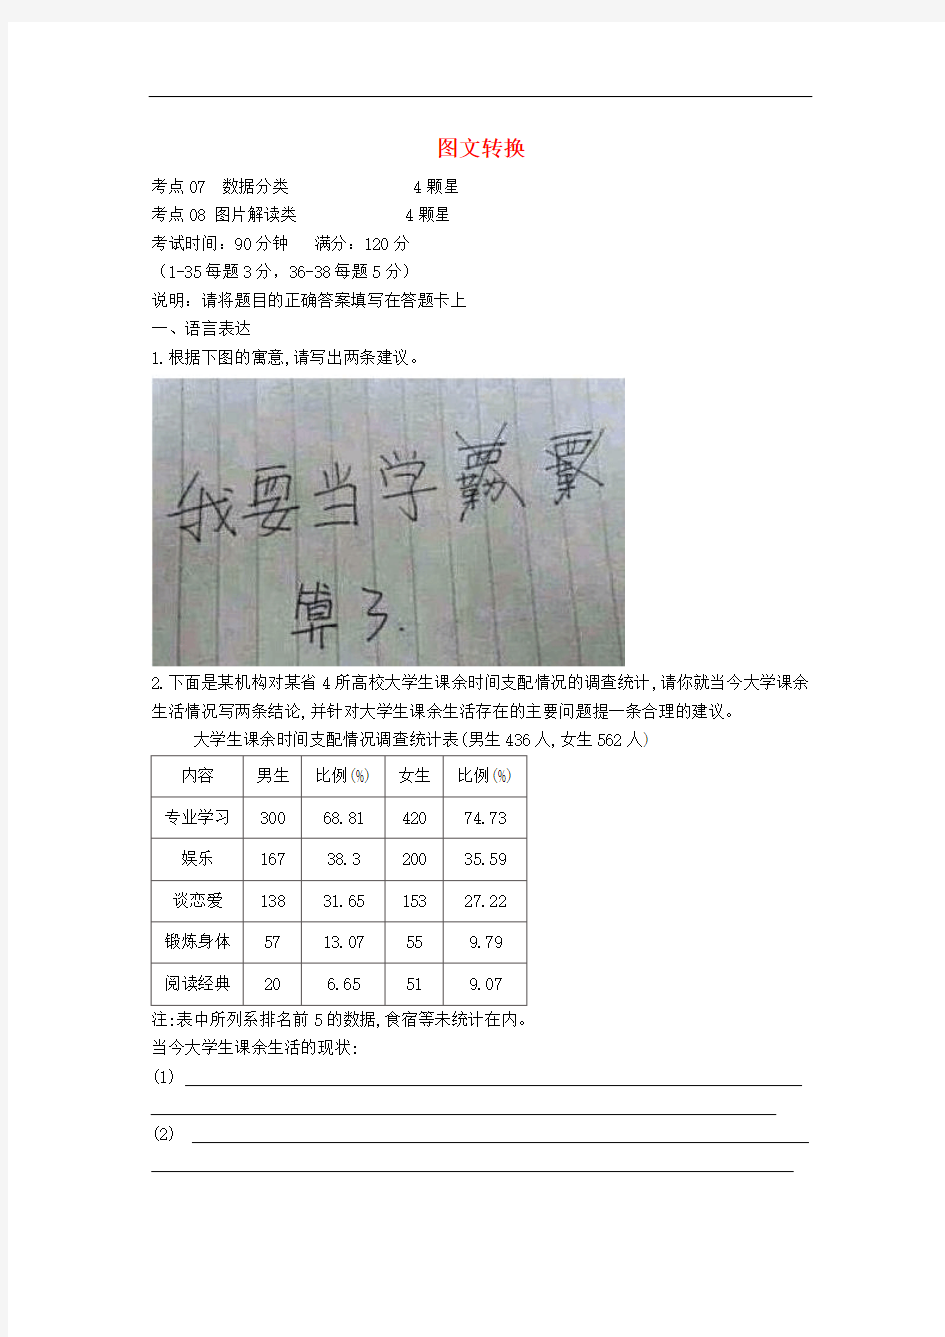 图文转换
考点07 数据分类 4颗星
考点08 图片解读类 4颗星
考试时间:90分钟 满分:120分
(1-35每题3分,36-38每题5分)
说明:请将题目的正确答案填写在答题卡上
一、语言表达
1.根据下图的寓意,请写出两条建议。
我要当学
算了.
2.下面是某机构对某省4所高校大学生课余时间支配情况的调查统计,请你就当今大学课余
生活情况写两条结论,并针对大学生课余生活存在的主要问题提一条合理的建议。
大学生课余时间支配情况调查统计表(男生436人,女生562人)
内容 男生 比例(%) 女生 比例(%)
专业学习 300 68.81 420 74.73
娱乐 167 38.3 200 35.59
谈恋爱 138 31.65 153 27.22
锻炼身体 57 13.07 55 9.79
阅读经典 20 6.65 51 9.07
注:表中所列系排名前5的数据,食宿等未统计在内。
当今大学生课余生活的现状:
(1)
(2)